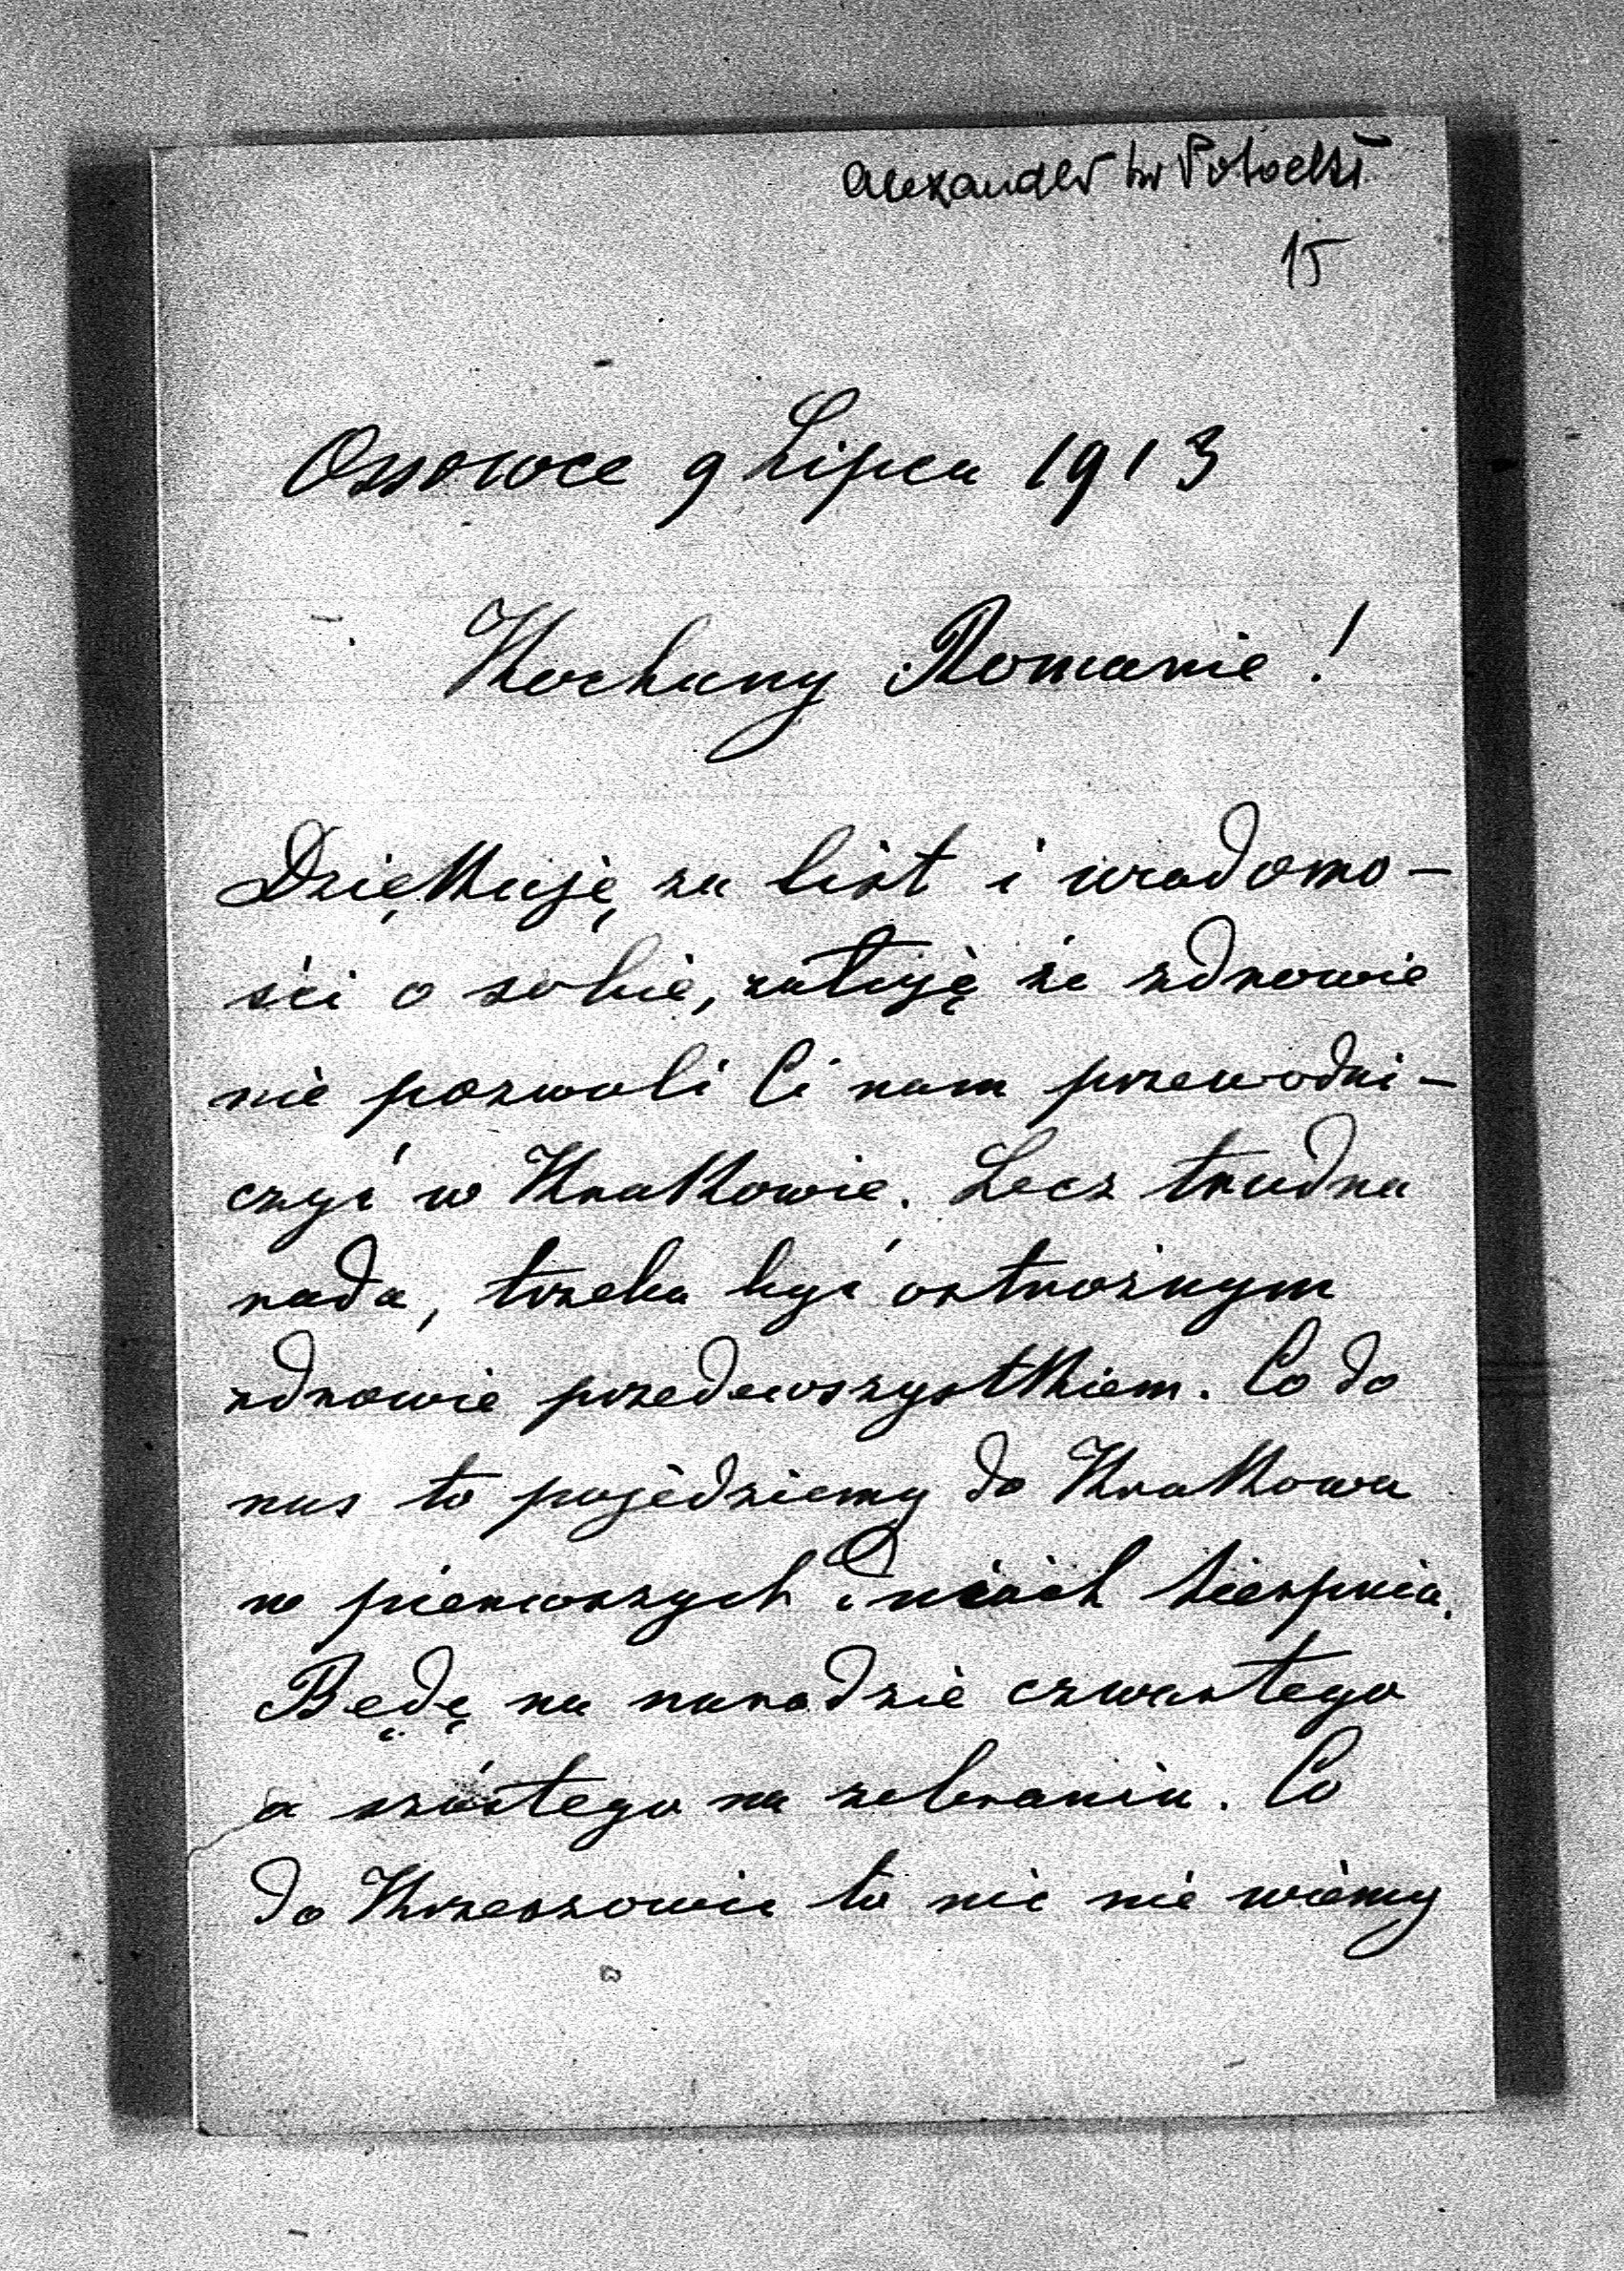 Alexander hr Potocki
15
Ossowce 9 Lipca 1913
Kochany Romanie!
Dziękuję za list i wiadomo-
ści o sobie, żałuję że zdrowie
nie pozwoli Ci nam przewodni-
czyć w Krakowie. Lecz trudna
rada, trzeba być ostrożnym
zdrowie przedewszystkiem. Co do
nas to pojedziemy do Krakowa
w pierwszych dniach sierpnia.
Będę na naradzie czwartego
a szóstego na zebraniu. Co
do Krzeszowic to nic nie wiemy